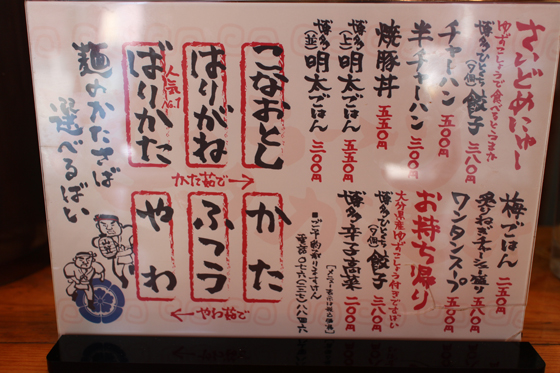 さいどめにゅー
ゆずこしょうで食べるとうまか
博多ひとくち餃子 三八〇円
(9個)
チャーハン 五〇〇円
半チャーハン 三〇〇円
焼豚丼 五五〇円
博多(上)明太ごはん 五五〇円
博多(並)明太ごはん 三〇〇円
梅ごはん 二五〇円
ワンタンスープ 五〇〇円
お持ち帰り
博多ひとくち餃子 三八〇円
(9個)
博多辛子高菜 三〇〇円
こなおとし
はりがね
ばりかた
人気No.1
かた麺で
かた
ふつう
やわ
やわ麺で
麺のかたさば
選べるばい